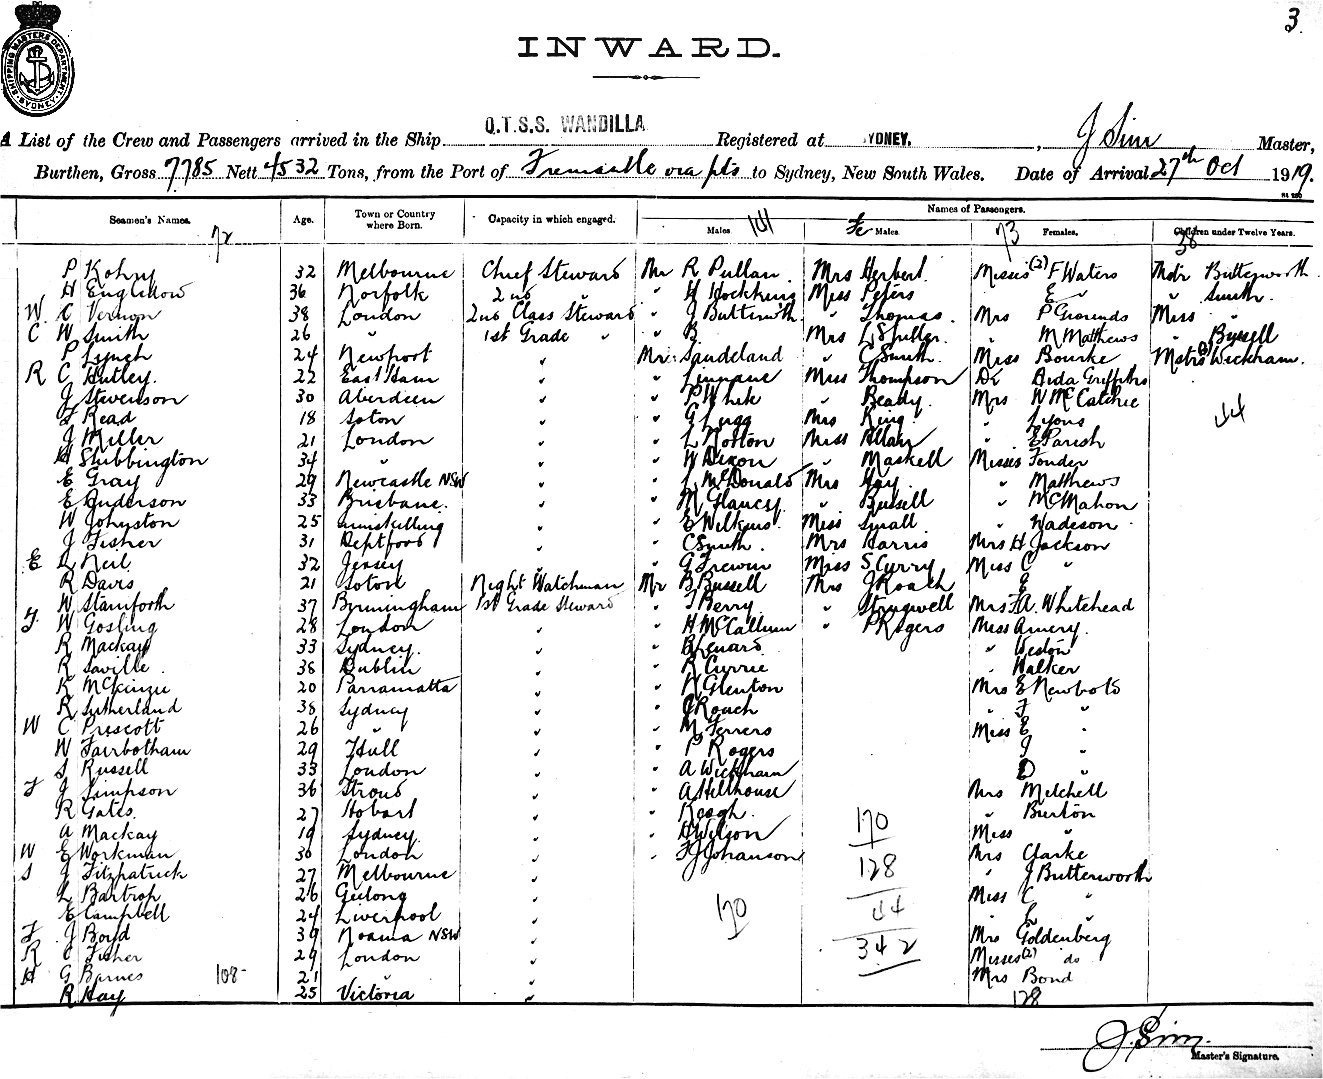 3
SHIPPING MASTERS DEPARTMENT SYDNEY
INWARD.
A List of the Crew and Passengers arrived in the Ship Q.T.S.S. WANDILLA Registered at SYDNEY, J Sim Master,
Burthen, Gross 7785 Nett 4532 Tons, from the Port of Fremantle via pts to Sydney, New South Wales. Date of Arrival 27th Oct 1919.
Seamen's Names. Age. Town or Country where Born. Capacity in which engaged. Names of Passengers.
72 Males 141 Fe Males 73 Females. Children under Twelve Years. 38
P 32 Melbourne Chief Steward Mr R Pullan Mrs Herbert Misses (2) F Waters Mstr Butterworth
H 36 Norfolk 2nd " " H Hocking Miss Peters " E " " Smith
W. C Vernon 38 London 2nd Class Steward " J Butterwth " Thomas. Mrs P Grounds Miss "
C W Smith 26 " 1st Grade " " B. Mrs L Spiller. " M Matthews " Bussell
P Lynch 24 Newport " Mr. Sandeland " C Smith. Miss Bourke Mstrs (2) Wickham.
R C Hutley. 22 East Ham " " Linnane Miss Thompson Dr Aida Griffiths
J Stevenson 30 Aberdeen " " P White " Beady. Mrs W McCatchie 44
Read 18 Soton " " G Mrs King. " Lyons
J Miller 21 London " " L Norton Miss " E Parish
H Stubbington 34 " " " W Dixon " Maskell Misses
E Gray 29 Newcastle NSW " " L McDonald Mrs Hay. " Matthews
E Anderson 33 Brisbane. " " M Glancy. " Bussell " McMahon
W Johnston 25 " " E Wilkins. Miss Small. " Wadeson
J Fisher 31 Deptford " " C Smith. Mrs Harris Mrs H Jackson
E L Neil 32 Jersey " " G Trewin Miss S Curry Miss C "
R Davis 21 Soton Night Watchman Mr B Bussell Mrs J Roach " E "
W Stamforth 37 Byrmingham 1st Grade Steward " T Berry " Strugwell Mrs F.A. Whitehead
F. W Gosling 28 London " " H McCallum " P Rogers Miss Amery.
R Mackay 33 Sydney. " " " Weston
R Saville 38 Dublin " " R Currie " Walker
R McKinzie 20 Parramatta " " Glenton Mrs E Newbold
R Sutherland 38 Sydney " " J Roach " F "
W C Prescott 26 " " " M Ferrers Miss E "
W Fairbotham 29 Hull " " P Rogers " J "
S Russell 33 London " " A Wickham " D "
F J Simpson 36 Stroud " " A Hillhouse Mrs Mitchell
R Gates. 27 Hobart " " Keogh. 170 " Burton
A Mackay 19 Sydney " " H Wilson Miss "
W E Workman 30 London " " F J Johanson 128 Mrs Clarke
S J Fitzpatrick 27 Melbourne " " J Butterworth
L Bartrop 26 Geelong " 170 44 Miss C "
E Campbell 24 Liverpool " " E "
F J Boyd 39 Noama NSW " 342 Mrs Goldenberg
R C Fisher 29 London " Misses (2) do
H G Barnes 108 21 " " Mrs Bond
R Hay 25 Victoria " 128
J. Sim.
Master's Signature.